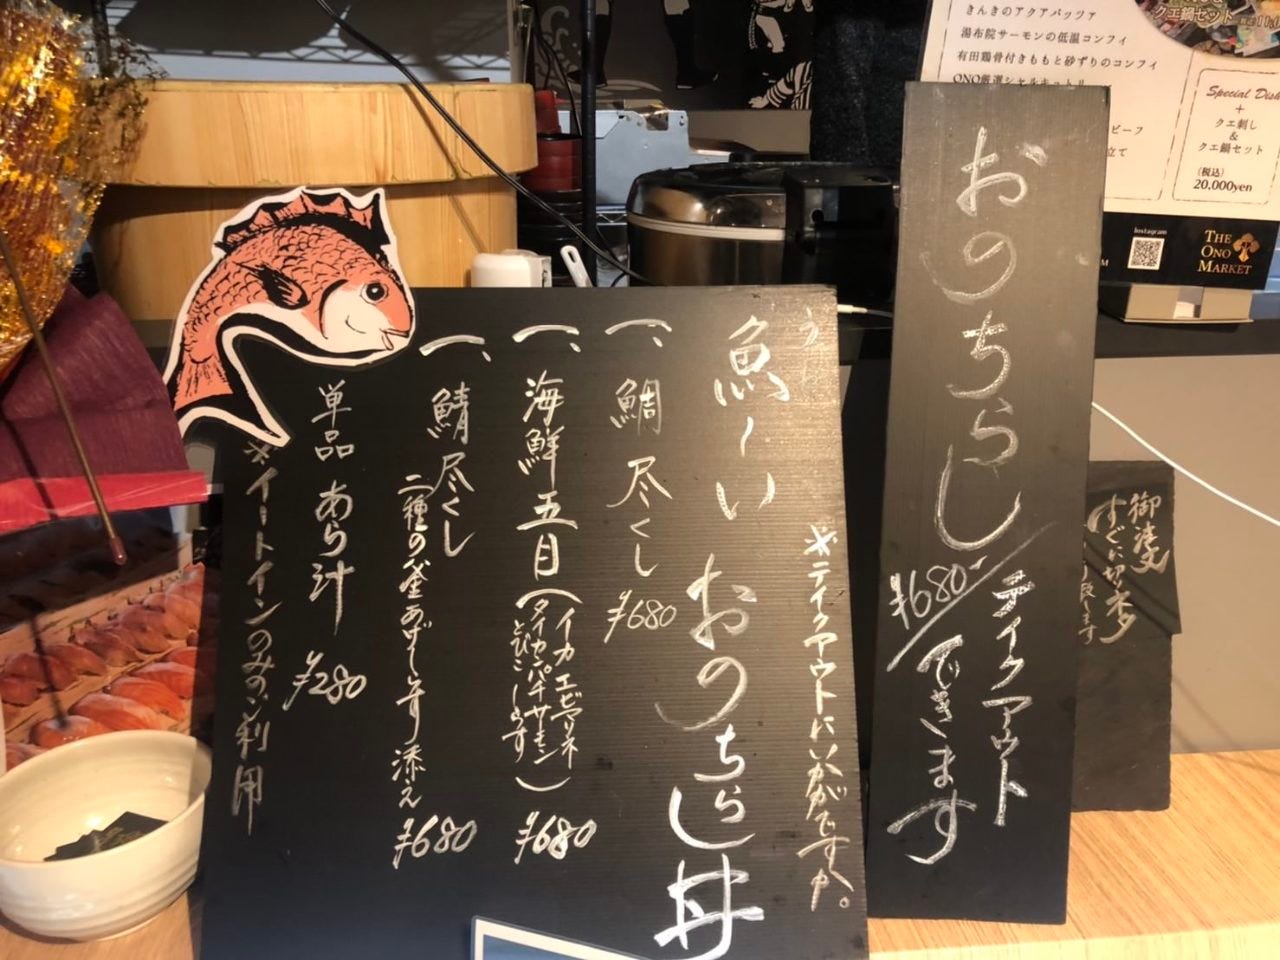 おのちらし
¥680-
テイクアウト
できます
※テイクアウトにいかがですか。
魚〜い おのちらし丼
一、鯛尽くし ¥680
一、海鮮五目(イカ エビ マリネ
タイ カンパチ サーモン
とびこ しらす) ¥680
一、鯖尽くし
二種の釜あげしらす添え ¥680
単品 あら汁 ¥280
※イートインのみのご利用
きんきのアクアパッツァ
湯布院サーモンの低温コンフィ
有田鶏骨付きももと砂ずりのコンフィ
ONO厳選シャルキュトリ
ビーフ
立て
クエ鍋セット
Special Dish
+
クエ刺し
&
クエ鍋セット
(税込)
20,000yen
Instagram
THE
ONO
MARKET
すぐに